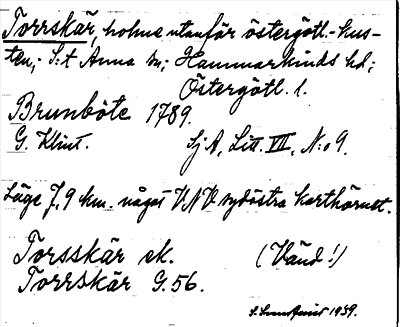 Torrskär, holme utanför östergötl.-kus-
ten; S:t Anna sn; Hammarkinds hd;
Östergötl. l.
Brunböte 1789.
G. Klint. Sj A, Litt. VII, N:o 9.
Läge 7,9 km. något VNV sydöstra karthörnet.
Torsskär ek. (Vänd!)
Torrskär G.56.
1939.